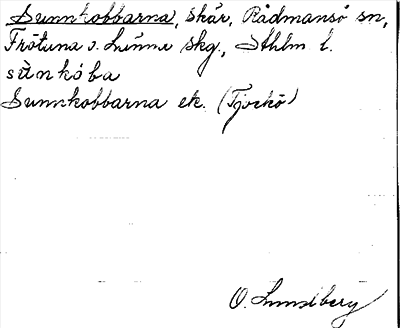 Sunnkobbarna, skär, Rådmansö sn,
Frötuna o. Länna skg., Sthlm l.
sùnkóba
Sunnkobbarna ek. (Tjockö)
O. Lundberg